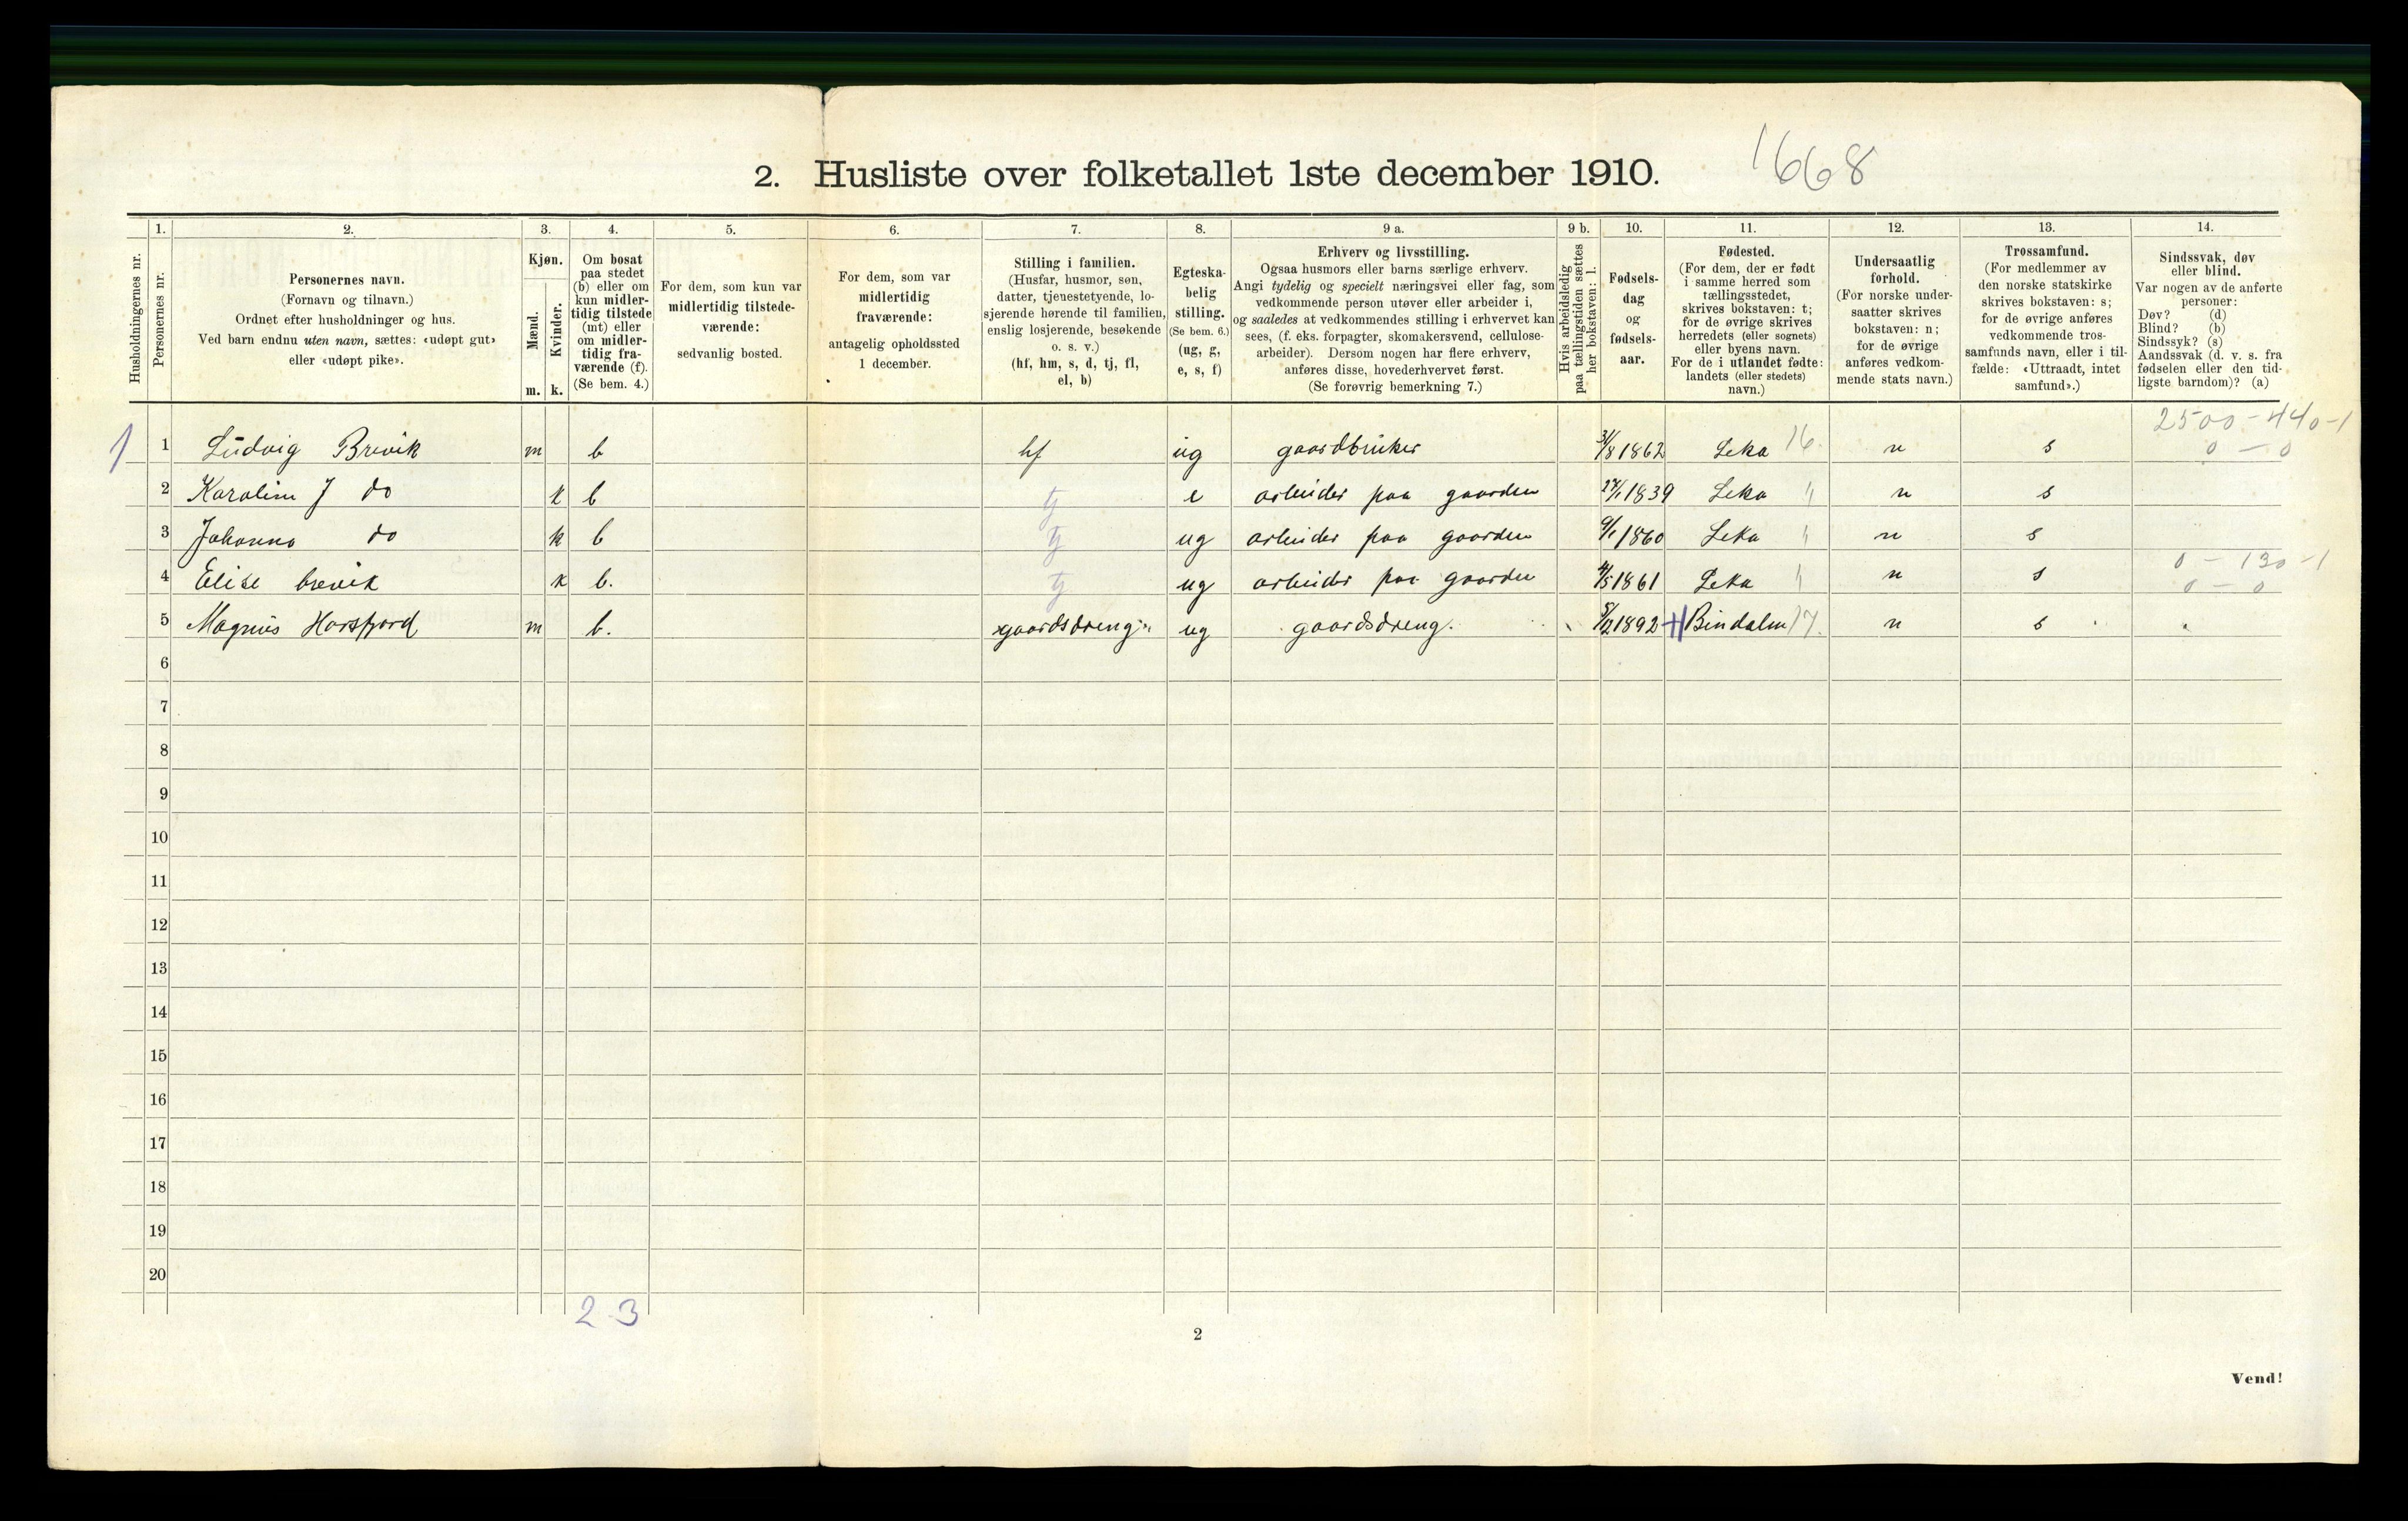 1668
2. Husliste over folketallet 1ste december 1910.
1. 2. 3. 4. 5. 6. 7. 8. 9 a. 9 b. 10. 11. 12. 13. 14.
Husholdningernes nr.
Personernes nr.
Personernes navn.
(Fornavn og tilnavn.)
Ordnet efter husholdninger og hus.
Ved barn endnu uten navn, sættes: «udøpt gut»
eller «udøpt pike».
Kjøn.
Mænd.
Kvinder.
m. k.
Om bosat
paa stedet
(b) eller om
kun midler-
tidig tilstede
(mt) eller
om midler-
tidig fra-
værende (f).
(Se bem. 4.)
For dem, som kun var
midlertidig tilstede-
værende:
sedvanlig bosted.
For dem, som var
midlertidig
fraværende:
antagelig opholdssted
1 december.
Stilling i familien.
(Husfar, husmor, søn,
datter, tjenestetyende, lo-
sjerende hørende til familien,
enslig losjerende, besøkende
o. s. v.)
(hf, hm, s, d, tj, fl,
el, b)
Egteska-
belig
stilling.
(Se bem. 6.)
(ug, g,
e, s, f)
Erhverv og livsstilling.
Ogsaa husmors eller barns særlige erhverv.
Angi tydelig og specielt næringsvei eller fag, som
vedkommende person utøver eller arbeider i,
og saaledes at vedkommendes stilling i erhvervet kan
sees, (f. eks. forpagter, skomakersvend, cellulose-
arbeider). Dersom nogen har flere erhverv,
anføres disse, hovederhvervet først.
(Se forøvrig bemerkning 7.)
Hvis arbeidsledig
paa tællingstiden sættes
her bokstaven: l.
Fødsels-
dag
og
fødsels-
aar.
Fødested.
(For dem, der er født
i samme herred som
tællingsstedet,
skrives bokstaven: t;
for de øvrige skrives
herredets (eller sognets)
eller byens navn.
For de i utlandet fødte:
landets (eller stedets)
navn.)
Undersaatlig
forhold.
(For norske under-
saatter skrives
bokstaven: n;
for de øvrige
anføres vedkom-
mende stats navn.)
Trossamfund.
(For medlemmer av
den norske statskirke
skrives bokstaven: s;
for de øvrige anføres
vedkommende tros-
samfunds navn, eller i til-
fælde: «Uttraadt, intet
samfund».)
Sindssvak, døv
eller blind.
Var nogen av de anførte
personer:
Døv? (d)
Blind? (b)
Sindssyk? (s)
Aandssvak (d. v. s. fra
fødselen eller den tid-
ligste barndom)? (a)
2500 - 440 - 1
1 1 Ludvig Brevik m b hf ug gaardbruker 31/8 1862 Leka 16. n s 0 - 0
2 Karoline J do k b tj e arbeider paa gaarden 27/1 1839 Leka " n s
3 Johanna do k b tj ug arbeider paa gaarden 9/1 1860 Leka " n s
0 - 130 - 1
4 Elise brevik k b. tj ug arbeider paa gaarden 4/5 1861 Leka " n s 0 - 0
5 Magnus Horsfjord m b. gaardsdreng ug gaardsdreng. 5/12 1892 Bindalen 17. n s
6
7
8
9
10
11
12
13
14
15
16
17
18
19
20
2 3
2
Vend!